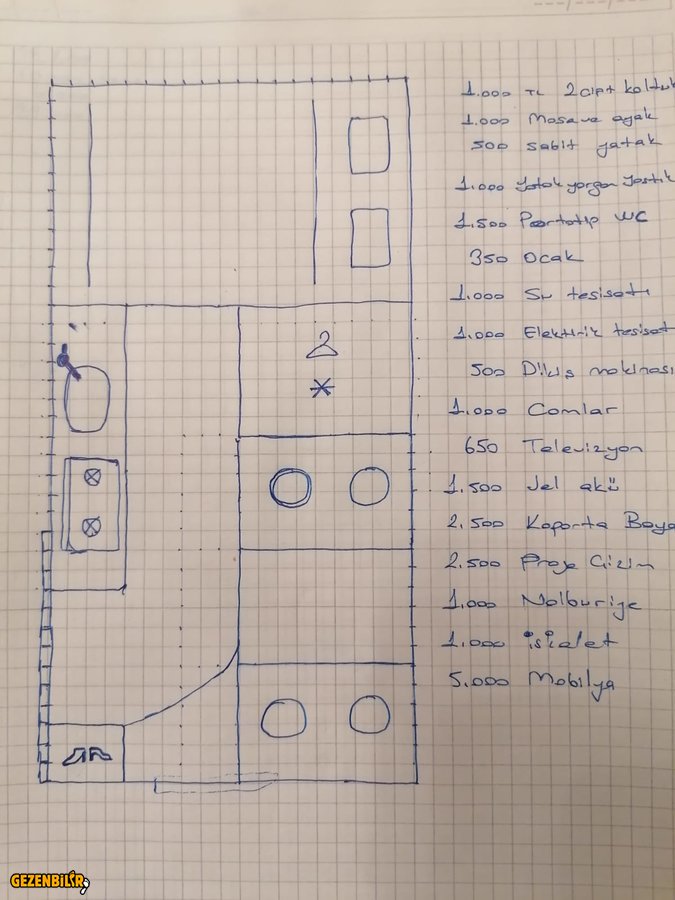 1.000 TL 2 çift koltuk
1.000 Masa ve ayak
500 sabit yatak
1.000 Yatak yorgan yastık
1.500 Poortatip WC
350 Ocak
1.000 Su tesisatı
1.000 Elektirik tesisat
500 Dikiş makinası
1.000 Camlar
650 Televizyon
1.500 Jel akü
2.500 Kaporta Boya
2.500 Proje Çizim
1.000 Nalburiye
1.000 isialet
5.000 Mobilya
GEZENBİLİR